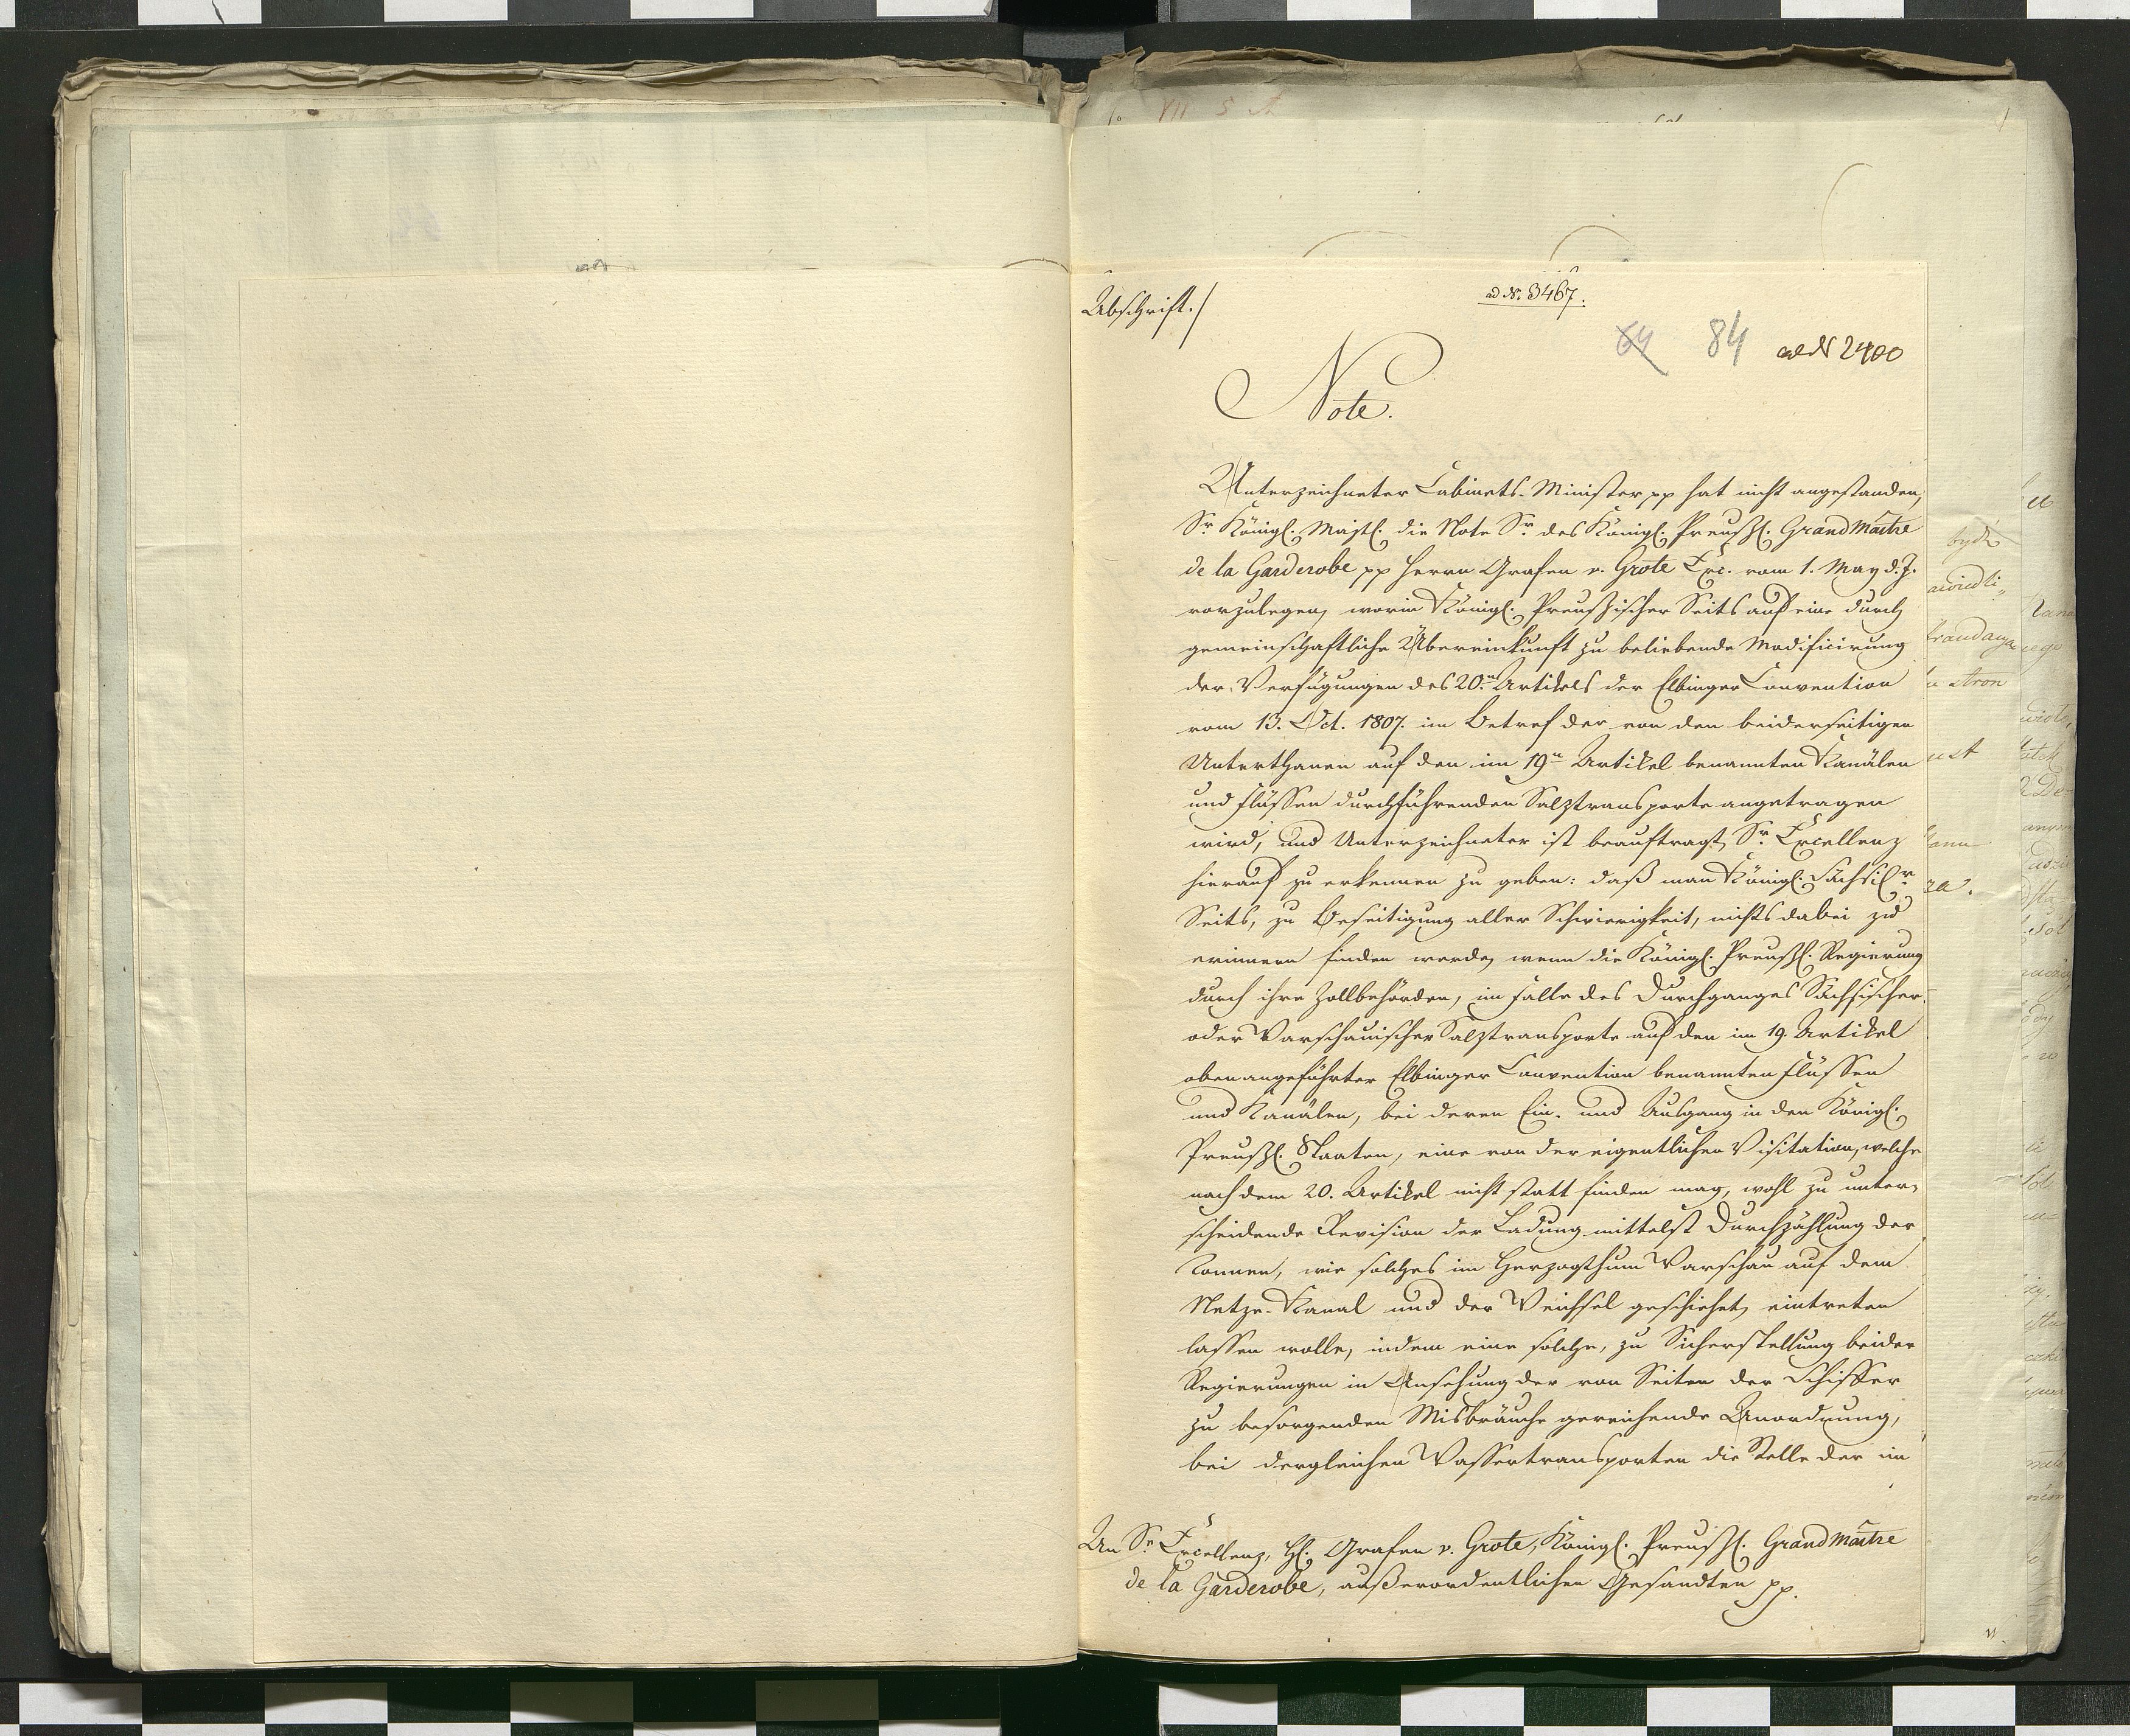 Abschrift./
ad N. 3467.
64 84 ad N 2400
Note.
Unterzeichneter Cabinets-Minister pp hat nicht angestanden,
Sr. Königl. Majst. die Note Sr. des Königl. Preußl. Grand Maitre
de la Garderobe pp Herrn Grafen v. Grote Exc. vom 1. May d. J.
vorzulegen, worin Königl. Preußischer Seits auf eine durch
gemeinschaftliche Übereinkunft zu beliebende Modificirung
der Verfügungen des 20.n Artikels der Elbinger Convention
vom 13. Oct. 1807. im Betref der von den beiderseitigen
Unterthanen auf den im 19n Artikel benannten Kanälen
und Flüssen durchführenden Salztransporte angetragen
wird, und Unterzeichneter ist beauftragt, Sr. Excellenz
hierauf zu erkennen zu geben: daß man Königl. Sächsischr
Seits, zu Beseitigung aller Schwierigkeit, nichts dabei zu
erinnern finden werde, wenn die Königl. Preußl. Regierung
durch ihre Zollbehörden, im Falle des Durchganges Sächsischer
oder Warschauischer Salztransporte auf den im 19. Artikel
obenangeführter Elbinger Convention benannten Flüssen
und Kanälen, bei deren Ein- und Ausgang in den Königl.
Preußl. Staaten, eine von der eigentlichen Visitation, welche
nach dem 20. Artikel nicht statt finden mag, wohl zu unter-
scheidende Revision der Ladung mittelst Durchzählung der
Tonnen, wie solches im Herzogthum Warschau auf dem
Netze-Kanal und der Weichsel geschiehet, eintreten
lassen wolle, indem eine solche, zu Sicherstellung beider
Regierungen in Ansehung der von Seiten der Schiffer
zu besorgenden Misbräuche gereichende Anordnung,
bei dergleichen Wassertransporten die Stelle der im
An Sr. Excellenz, H. Grafen v. Grote, Königl. Preußl. Grand Maitre
de la Garderobe, außerordentlichen Gesandten pp.